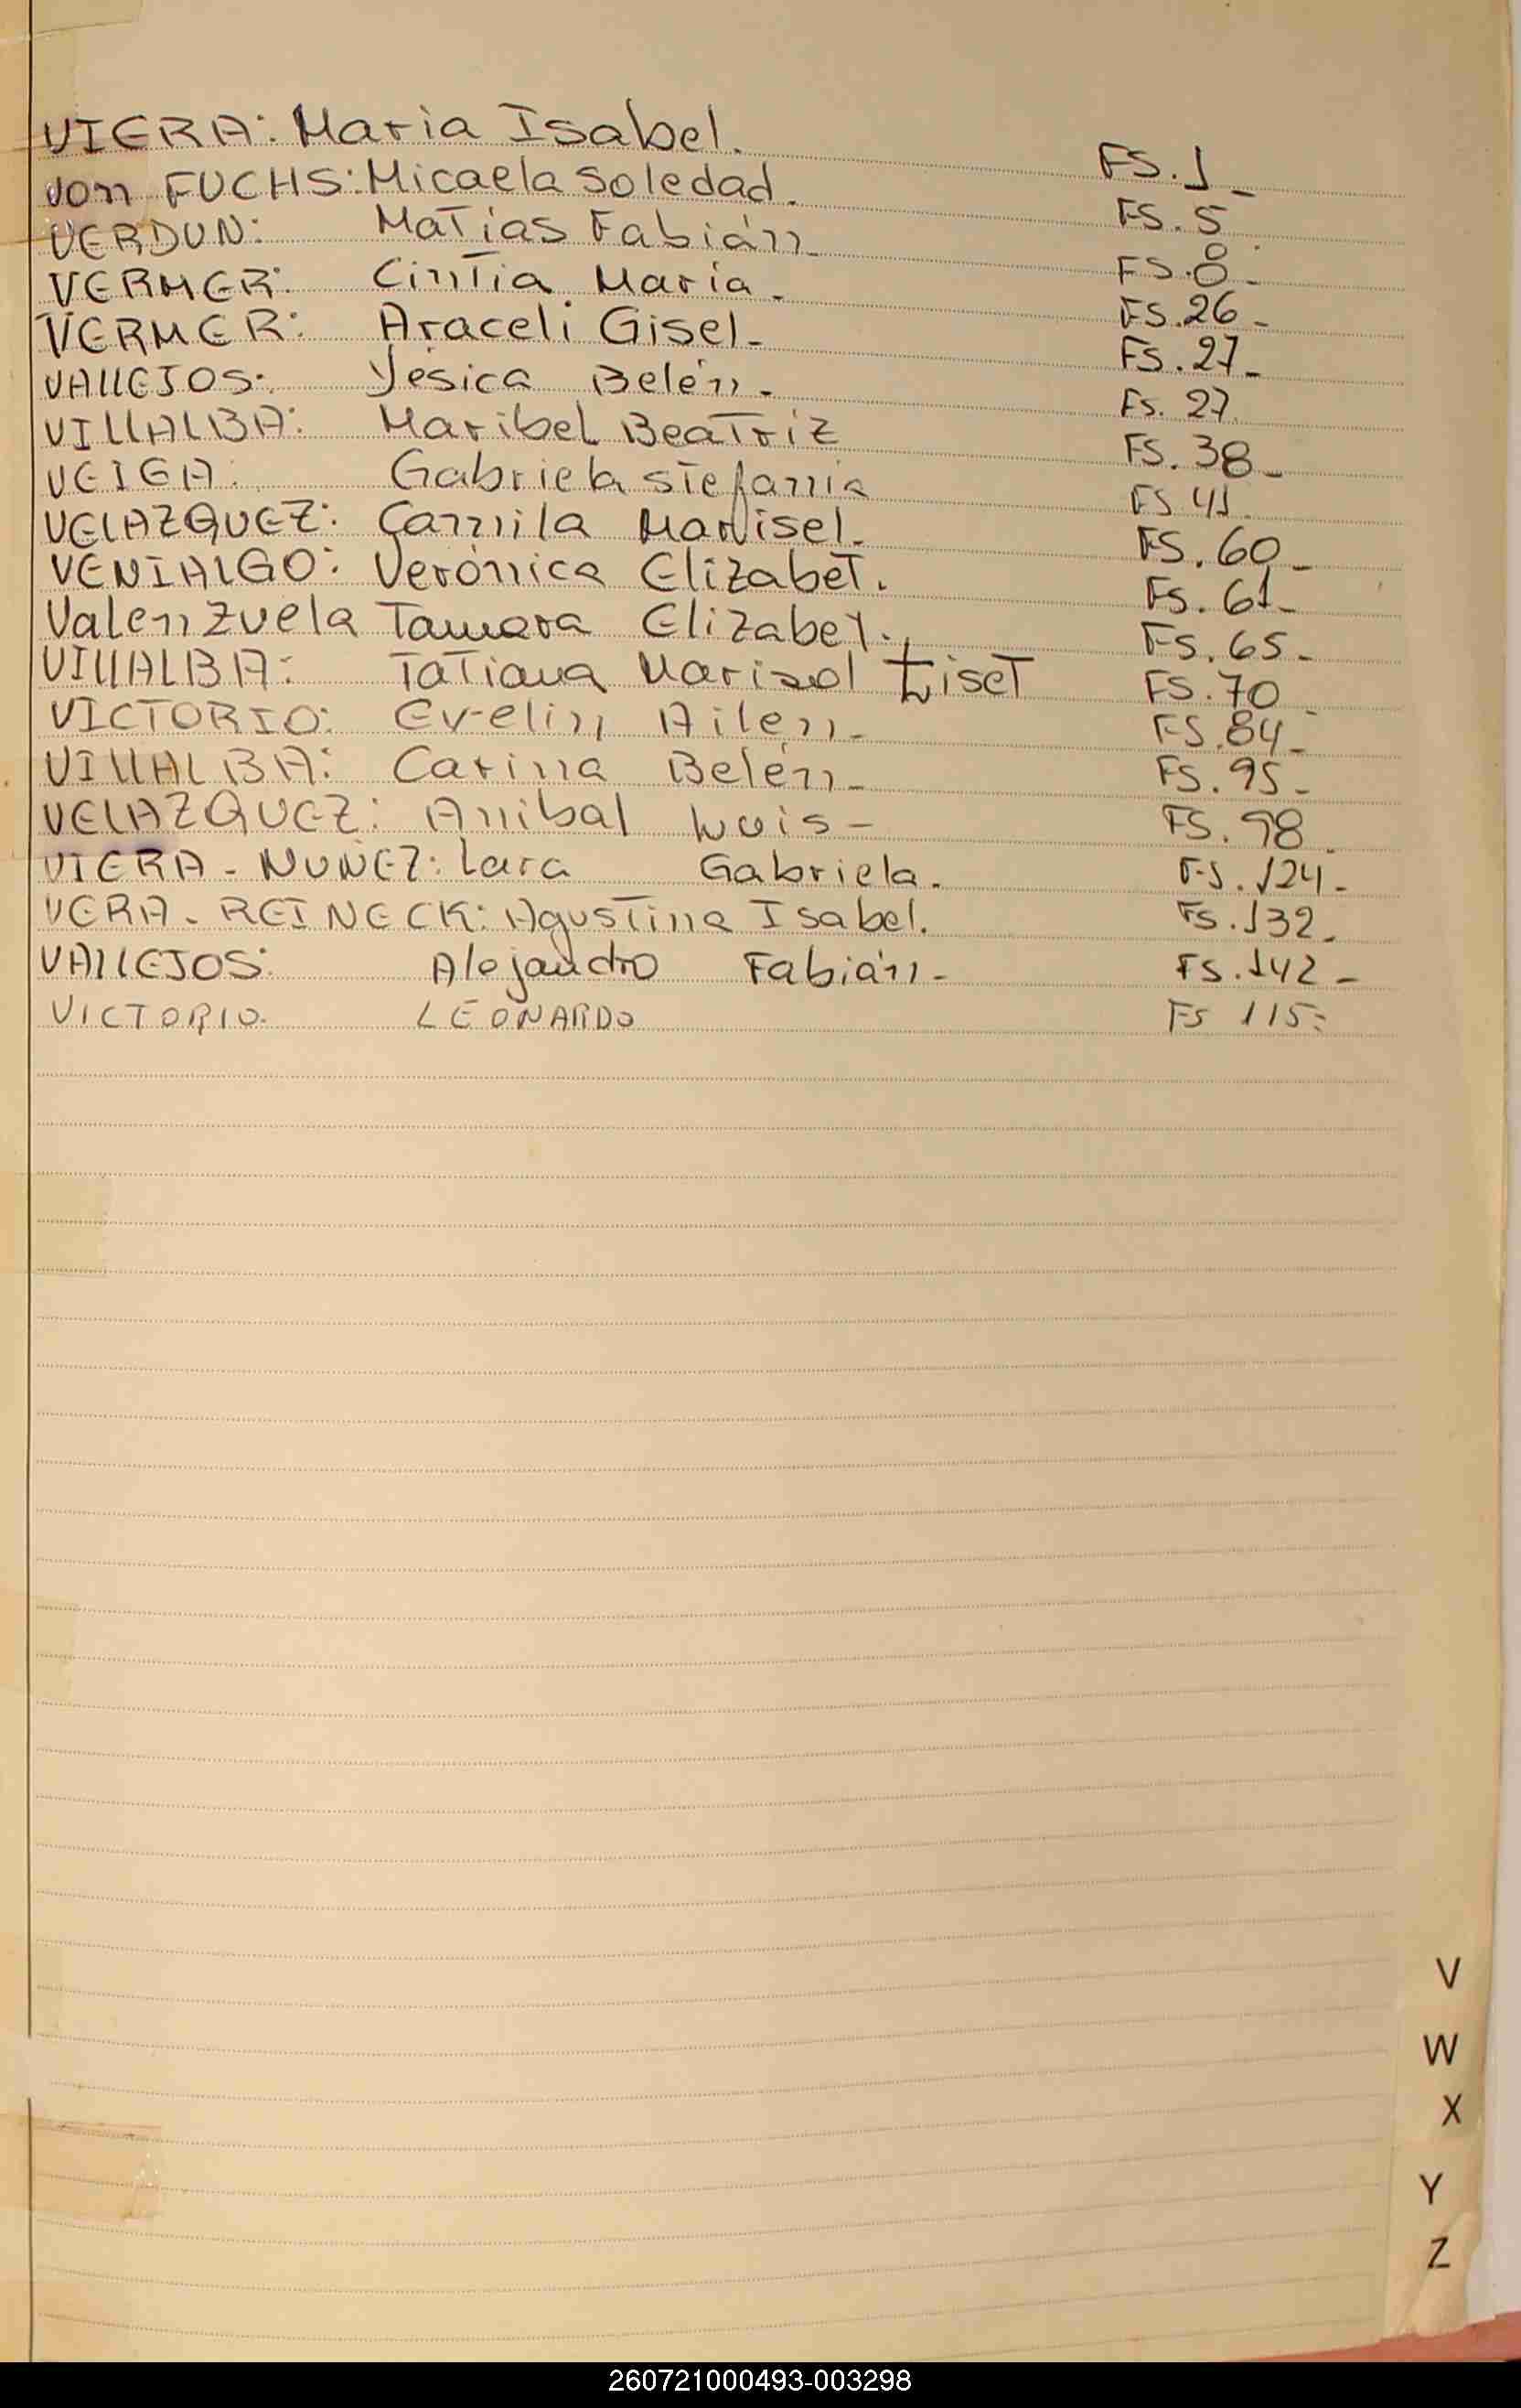 VIERA: Maria Isabel. FS. 1-
von FUCHS: Micaela Soledad. FS. 5
VERDUN: Matías Fabián- FS. 8-
VERMER: Cintia Maria- FS. 26-
VERMER: Araceli Gisel- FS. 27-
VALLEJOS: Yésica Belén- FS. 27.
VILLALBA: Maribel Beatriz FS. 38-
VEIGA: Gabriela Stefania FS 41.
VELAZQUEZ: Camila Marisel. FS. 60-
VENIALGO: Verónica Elizabet. FS. 61-
Valenzuela Tamara Elizabet. FS. 65-
VILLALBA: Tatiana Marisol Liset FS. 70
VICTORIO: Evelin Ailen- FS. 84-
VILLALBA: Carina Belén- FS. 95-
VELAZQUEZ: Anibal Luis- FS. 98.
VIERA-NUÑEZ: Lara Gabriela. FS. 124-
VERA-REINECK: Agustina Isabel. FS. 132-
VALLEJOS: Alejandro Fabián- FS. 142-
VICTORIO. LEONARDO FS 115-
V
W
X
Y
Z
260721000493-003298